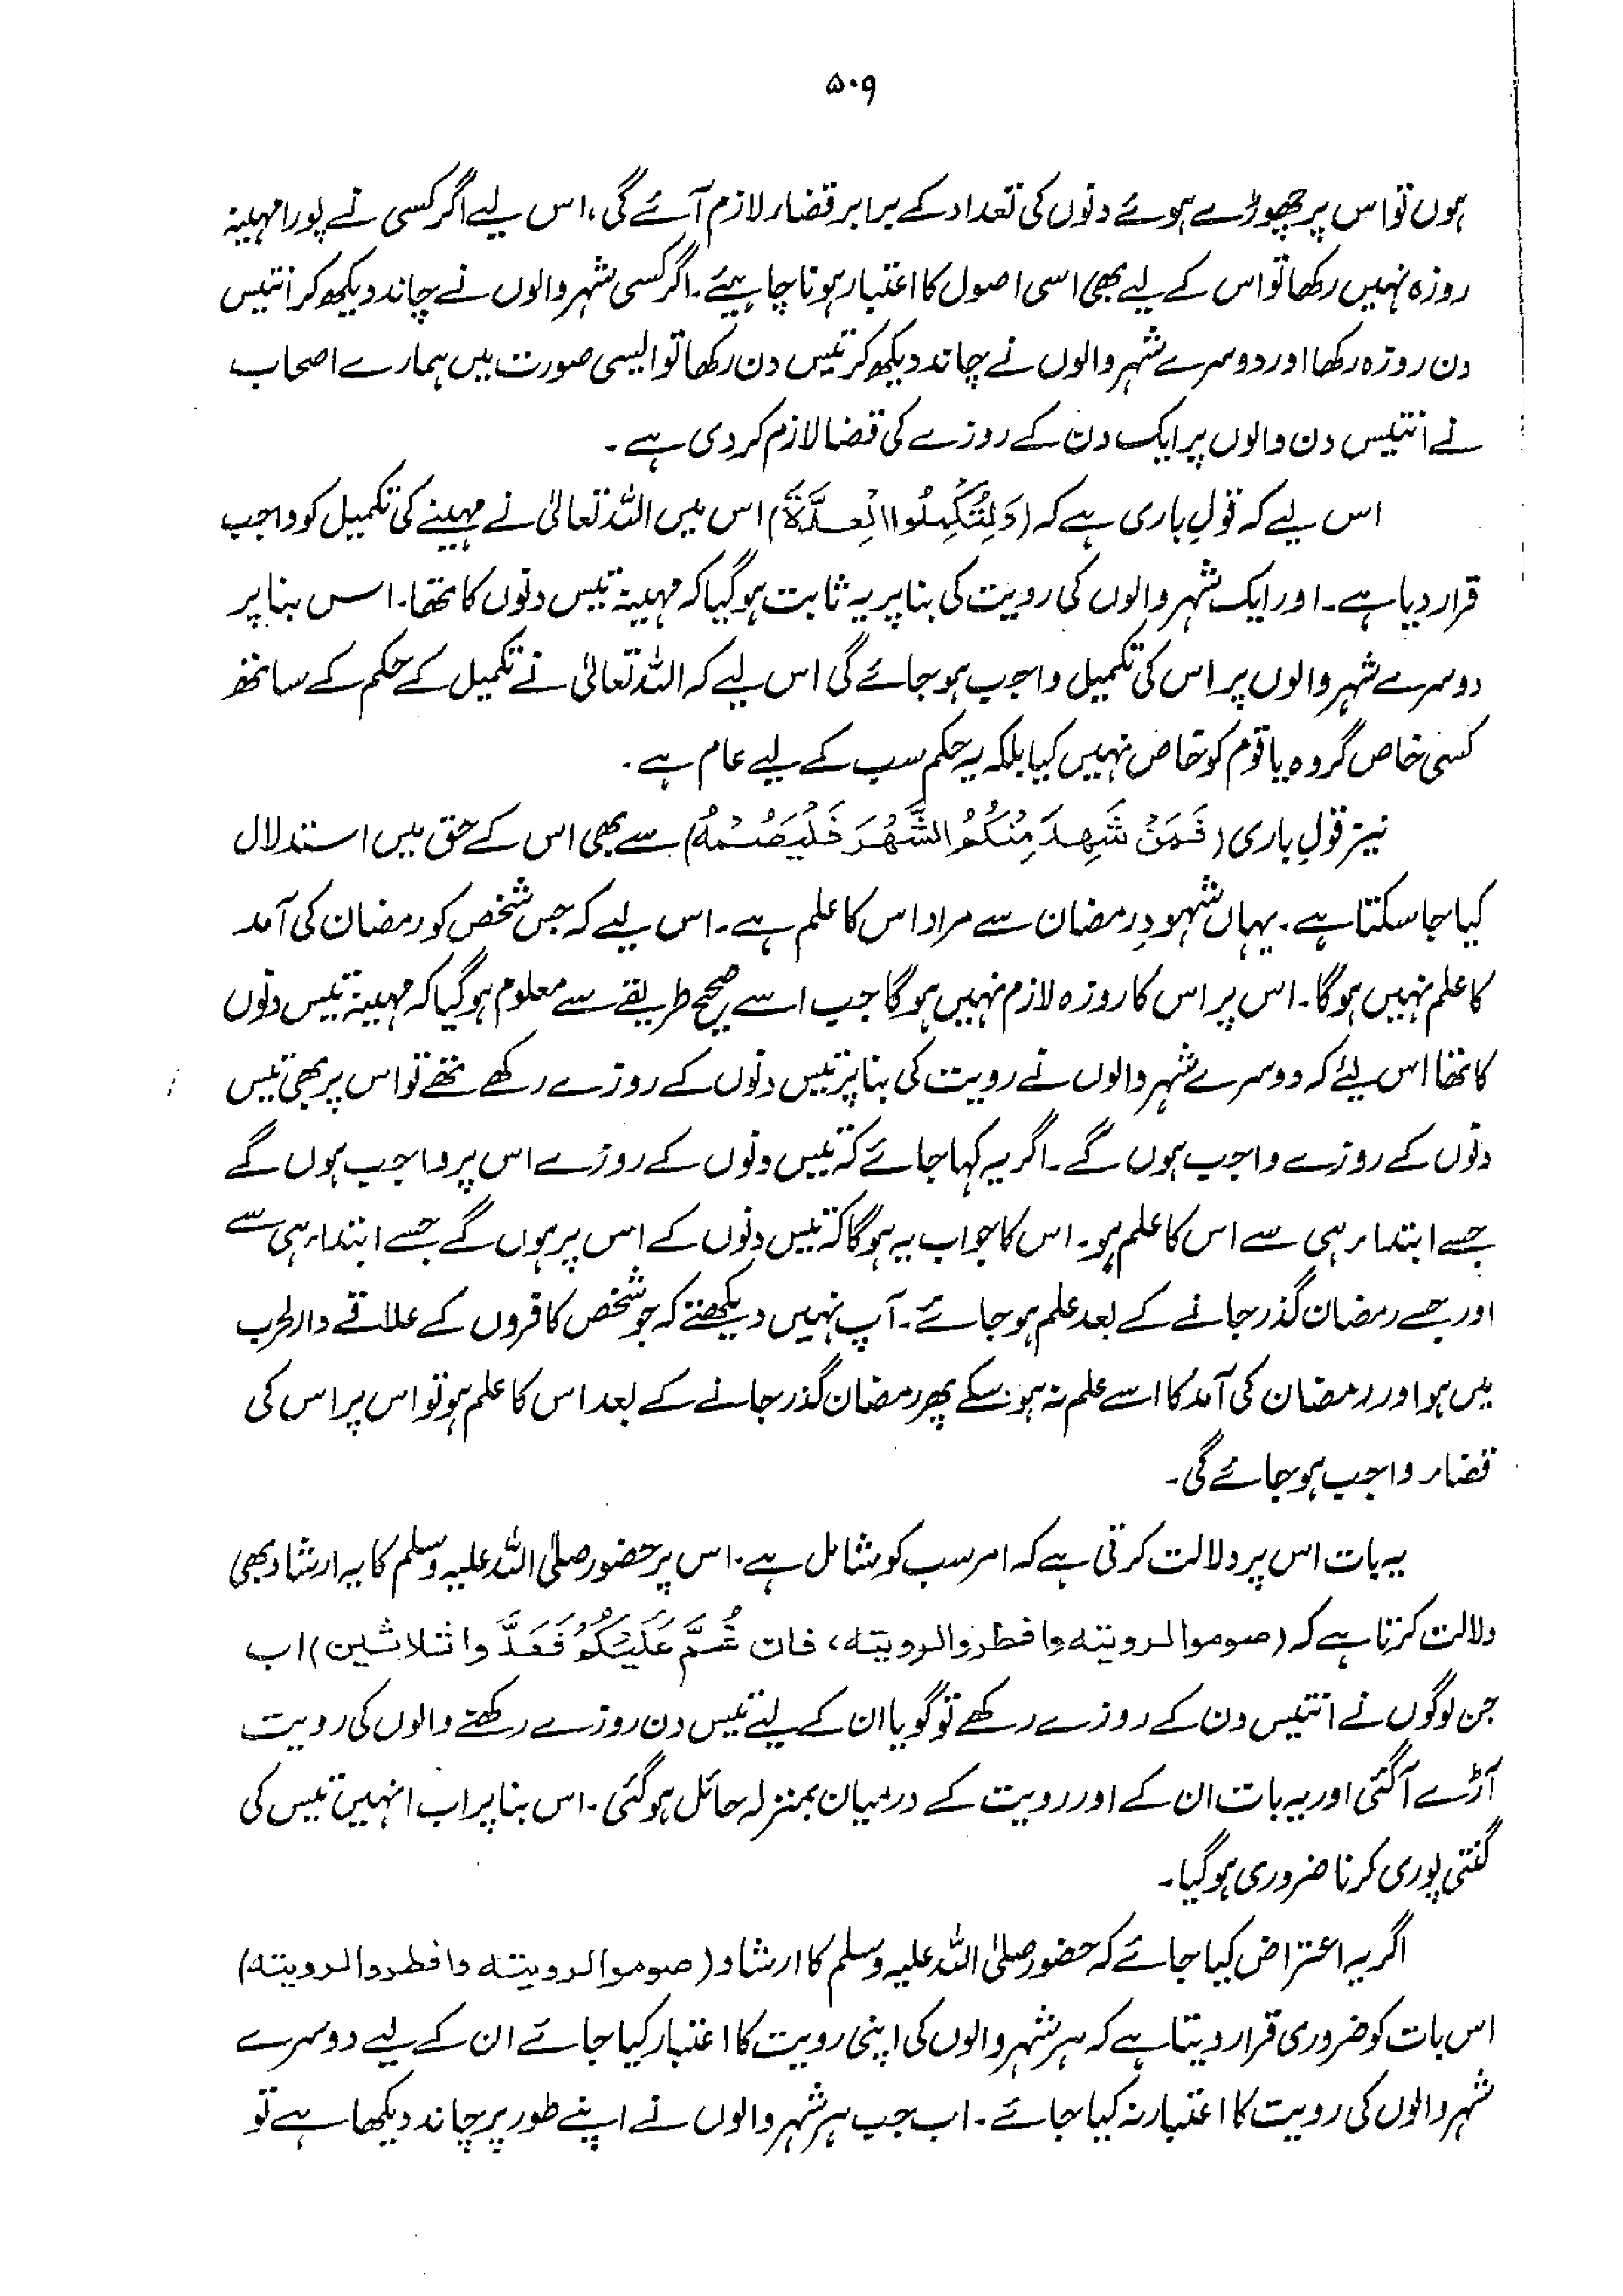 ۵۰۹
ہوں تو اس پر چھوڑے ہوئے دنوں کی تعداد کے برابر قضاء لازم آئے گی، اس لیے اگر کسی نے پورا مہینہ
روزہ نہیں رکھا تو اس کے لیے بھی اسی اصول کا اعتبار ہونا چاہیئے۔ اگر کسی شہر والوں نے چاند دیکھ کر انتیس
دن روزہ رکھا اور دوسرے شہر والوں نے چاند دیکھ کر تیس دن رکھا تو ایسی صورت میں ہمارے اصحاب
نے انتیس دن والوں پر ایک دن کے روزے کی قضا لازم کر دی ہے۔
اس لیے کہ قولِ باری ہے کہ (وَلِتُكْمِلُوا الْعِدَّةَ) اس میں اللہ تعالیٰ نے مہینے کی تکمیل کو واجب
قرار دیا ہے۔ اور ایک شہر والوں کی رویت کی بنا پر یہ ثابت ہو گیا کہ مہینہ تیس دنوں کا تھا۔ اس بنا پر
دوسرے شہر والوں پر اس کی تکمیل واجب ہو جائے گی اس لیے کہ اللہ تعالیٰ نے تکمیل کے حکم کے ساتھ
کسی خاص گروہ یا قوم کو خاص نہیں کیا بلکہ یہ حکم سب کے لیے عام ہے۔
نیز قولِ باری (فَمَنْ شَهِدَ مِنْكُمُ الشَّهْرَ فَلْيَصُمْهُ) سے بھی اس کے حق میں استدلال
کیا جا سکتا ہے۔ یہاں شہودِ رمضان سے مراد اس کا علم ہے۔ اس لیے کہ جس شخص کو رمضان کی آمد
کا علم نہیں ہوگا۔ اس پر اس کا روزہ لازم نہیں ہوگا جب اسے صحیح طریقے سے معلوم ہو گیا کہ مہینہ تیس دنوں
کا تھا اس لیئے کہ دوسرے شہر والوں نے رویت کی بنا پر تیس دنوں کے روزے رکھے تھے تو اس پر بھی تیس
دنوں کے روزے واجب ہوں گے۔ اگر یہ کہا جائے کہ تیس دنوں کے روزے اس پر واجب ہوں گے
جسے ابتداء ہی سے اس کا علم ہو۔ اس کا جواب یہ ہوگا کہ تیس دنوں کے اس پر ہوں گے جسے ابتداء ہی سے
اور جسے رمضان گذر جانے کے بعد علم ہو جائے۔ آپ نہیں دیکھتے کہ جو شخص کافروں کے علاقے دارلحرب
میں ہو اور رمضان کی آمد کا اسے علم نہ ہو سکے پھر رمضان گذر جانے کے بعد اس کا علم ہو تو اس پر اس کی
قضاء واجب ہو جائے گی۔
یہ بات اس پر دلالت کرتی ہے کہ امر سب کو شامل ہے۔ اس پر حضور صلی اللہ علیہ وسلم کا یہ ارشاد بھی
دلالت کرتا ہے کہ (صوموا لرويته وافطروا لرويته، فان غُمَّ عَلَيْكُمْ فَعَدَّ وا ثلاثين) اب
جن لوگوں نے انتیس دن کے روزے رکھے تو گویا ان کے لیئے تیس دن روزے رکھنے والوں کی رویت
آڑے آگئی اور یہ بات ان کے اور رویت کے درمیان بمنزلہ حائل ہو گئی۔ اس بنا پر اب انہیں تیس کی
گنتی پوری کرنا ضروری ہو گیا۔
اگر یہ اعتراض کیا جائے کہ حضور صلی اللہ علیہ وسلم کا ارشاد (صوموا لرويته وافطروا لرويته)
اس بات کو ضروری قرار دیتا ہے کہ ہر شہر والوں کی اپنی رویت کا اعتبار کیا جائے ان کے لیے دوسرے
شہر والوں کی رویت کا اعتبار نہ کیا جائے۔ اب جب ہر شہر والوں نے اپنے طور پر چاند دیکھا ہے تو